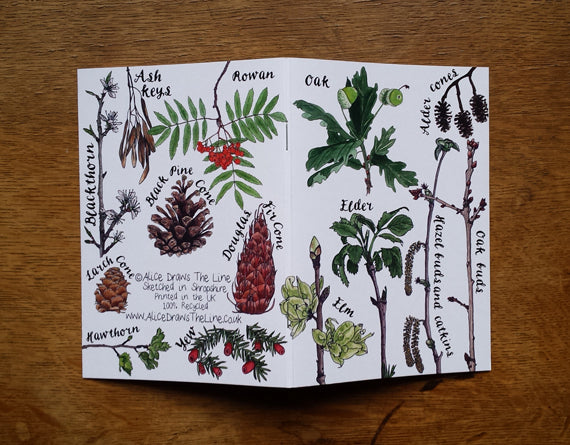 Ash
keys
Rowan
Blackthorn
Black Pine
Cone
Douglas
Fir Cone
Larch Cone
©Alice Draws The Line
Sketched in Shropshire
Printed in the UK
100% Recycled
www.AliceDrawsTheLine.co.uk
Hawthorn
Yew
Oak
Alder cones
Elder
Elm
Hazel buds and catkins
Oak buds